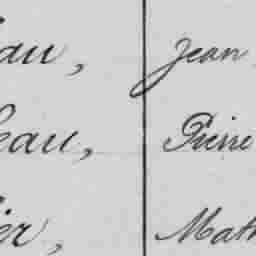 au, Jean
eau, Pierre
ier, Math